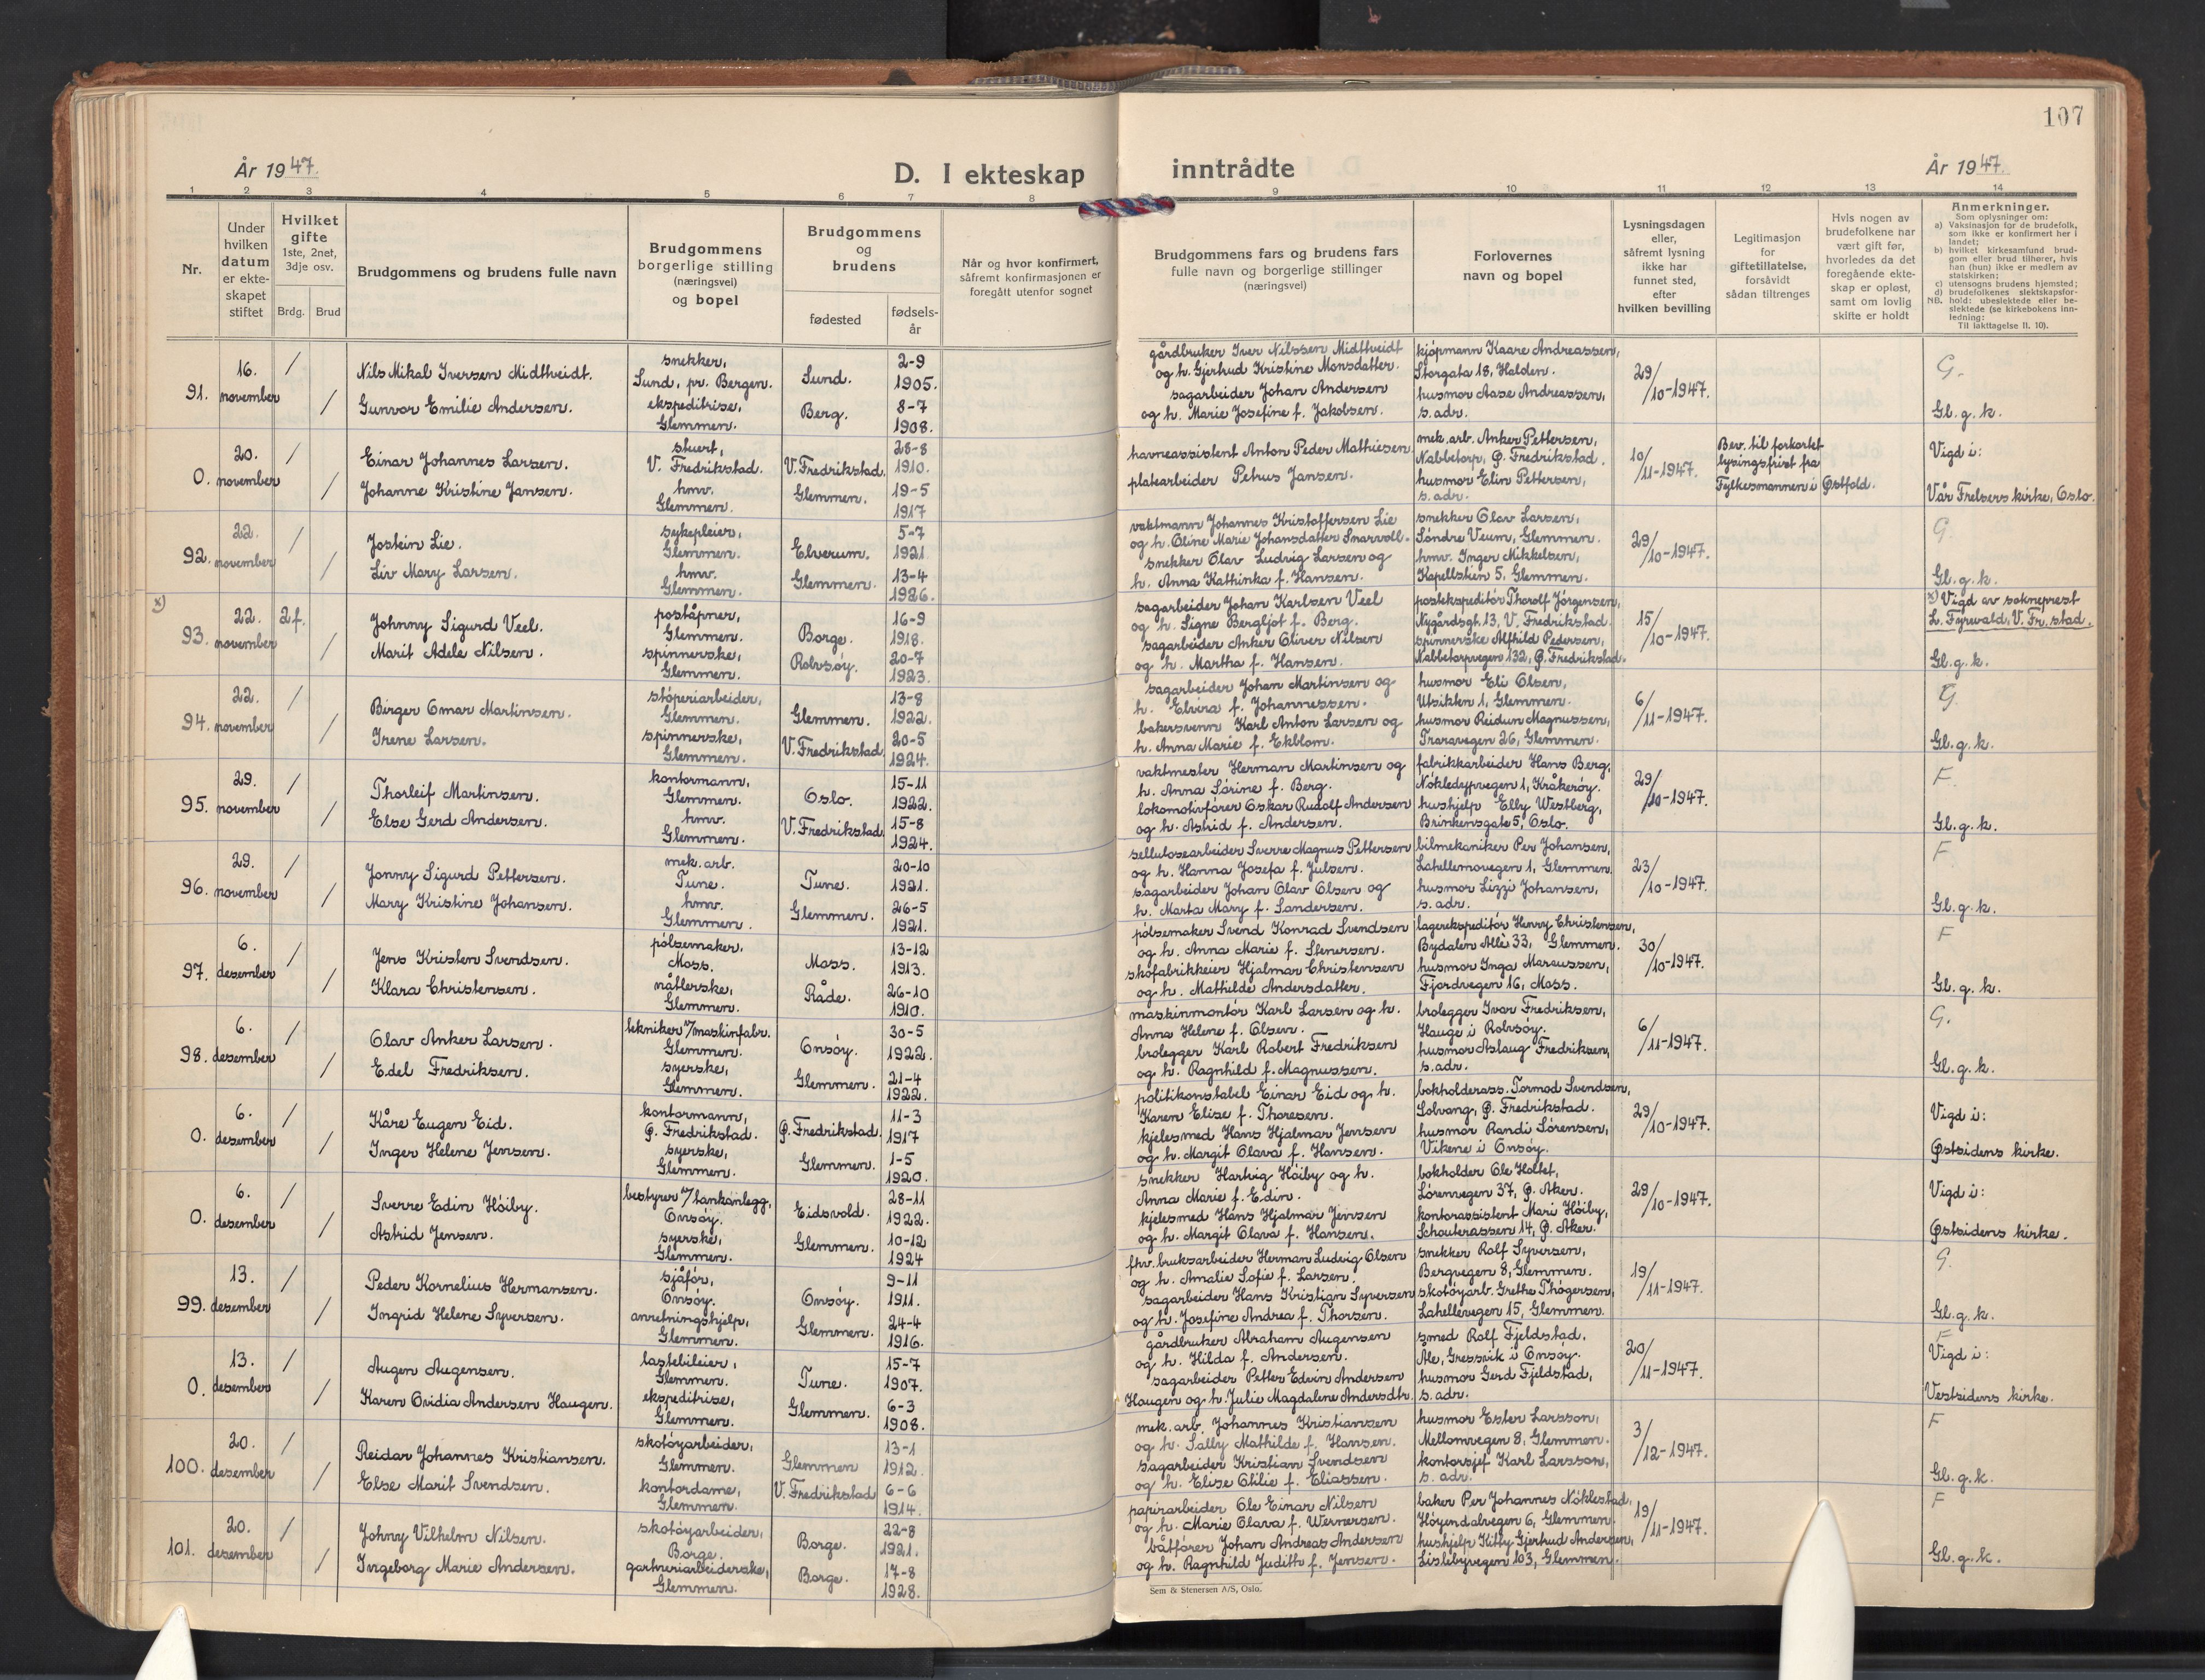 107
År 1947.
D. I ekteskap
inntrådte
År 1947.
1 2 3 4 5 6 7 8 9 10 11 12 13 14
Nr.
Under
hvilken
datum
er ekte-
skapet
stiftet
Hvilket
gifte
1ste, 2net,
3dje osv.
Brdg. Brud
Brudgommens og brudens fulle navn
Brudgommens
borgerlige stilling
(næringsvei)
og bopel
Brudgommens
og
brudens
fødested
fødsels-
år
Når og hvor konfirmert,
såfremt konfirmasjonen er
foregått utenfor sognet
Brudgommens fars og brudens fars
fulle navn og borgerlige stillinger
(næringsvei)
Forlovernes
navn og bopel
Lysningsdagen
eller,
såfremt lysning
ikke har
funnet sted,
efter
hvilken bevilling
Legitimasjon
for
giftetillatelse,
forsåvidt
sådan tiltrenges
Hvis nogen av
brudefolkene har
vært gift før,
hvorledes da det
foregående ekte-
skap er opløst,
samt om lovlig
skifte er holdt
Anmerkninger.
Som oplysninger om:
a) Vaksinasjon for de brudefolk,
som ikke er konfirmert her i
landet;
b) hvilket kirkesamfund brud-
gom eller brud tilhører, hvis
han (hun) ikke er medlem av
statskirken;
c) utensogns brudens hjemsted;
d) brudefolkenes slektskapsfor-
NB. hold: ubeslektede eller be-
slektede (se kirkebokens inn-
ledning:
Til iakttagelse II. 10).
91.
16.
november
/
/
Nils Mikal Iversen Midttveidt.
Gunvor Emilie Andersen.
snekker,
Sund, pr. Bergen.
ekspeditrise,
Glemmen.
Sund.
Berg.
2-9
1905.
8-7
1908.
gårdbruker Iver Nilssen Midttveidt
og h. Gjertrud Kristine Monsdatter.
sagarbeider Johan Andersen
og h. Marie Josefine f. Jakobsen.
kjøpmann Kaare Andreassen,
Storgata 18, Halden.
husmor Aase Andreassen,
s. adr.
29/10-1947.
G.
Gl. g. k.
0.
20.
november
/
/
Einar Johannes Larsen.
Johanne Kristine Jansen.
stuert,
V. Fredrikstad.
hmv.
Glemmen.
V. Fredrikstad.
Glemmen.
28-8
1910.
19-5
1917
havneassistent Anton Peder Mathiesen.
platearbeider Petrus Jansen.
mek. arb. Anker Pettersen,
Nabbetorp, Ø. Fredrikstad.
husmor Elin Pettersen,
s. adr.
10/11-1947.
Bev. til forkortet
lysingsfrist fra
Fylkesmannen i Østfold.
Vigd i:
Vår Frelsers kirke, Oslo.
92.
22.
november
/
/
Jostein Lie.
Liv Mary Larsen.
sykepleier,
Glemmen.
hmv.
Glemmen.
Elverum.
Glemmen.
5-7
1921
13-4
1926.
vaktmann Johannes Kristoffersen Lie
og h. Oline Marie Johansdatter Snarvoll.
snekker Olav Ludvig Larsen og
h. Anna Kathinka f. Hansen.
snekker Olav Larsen,
Søndre Veum, Glemmen.
hmv. Inger Mikkelsen,
Kapellstien 5, Glemmen.
29/10-1947.
G.
Gl. g. k.
x)
93.
22.
november
2f.
/
Johnny Sigurd Veel.
Marit Adele Nilsen.
poståpner,
Glemmen.
spinnerske,
Glemmen.
Borge.
Rolvsøy.
16-9
1918.
20-7
1923.
sagarbeider Johan Karlsen Veel
og h. Signe Bergljot f. Berg.
sagarbeider Anker Oliver Nilsen
og h. Martha f. Hansen.
postekspeditør Thorolf Jørgensen,
Nygårdsgt. 13, V. Fredrikstad.
spinnerske Alfhild Pedersen,
Nabbetorpvegen 132, Ø. Fredrikstad.
15/10-1947.
x) Vigd av sokneprest
L. Fyrwald, V. Fr.stad.
Gl. g. k.
94.
22.
november
/
/
Birger Omar Martinsen.
Irene Larsen.
støperiarbeider,
Glemmen.
spinnerske,
Glemmen.
Glemmen.
V. Fredrikstad
13-8
1922.
20-5
1924.
sagarbeider Johan Martinsen og
h. Elvira f. Johannessen.
bakersvenn Karl Anton Larsen og
h. Anna Marie f. Ekblom.
husmor Eli Olsen,
Utsikten 1, Glemmen.
husmor Reidun Magnussen,
Traravegen 26, Glemmen.
6/11-1947.
G.
Gl. g. k.
95.
29.
november
/
/
Thorleif Martinsen.
Else Gerd Andersen.
kontormann,
Glemmen.
hmv.
Glemmen.
Oslo.
V. Fredrikstad.
15-11
1922.
15-8
1924.
vaktmester Herman Martinsen og
h. Anna Sørine f. Berg.
lokomotivfører Oskar Rudolf Andersen
og h. Astrid f. Andersen.
fabrikkarbeider Hans Berg,
Nøkledypvegen 1, Kråkerøy.
hushjelp Elly Westberg,
Brinkensgate 5, Oslo.
29/10-1947.
F.
Gl. g. k.
96.
29.
november
/
/
Jonny Sigurd Pettersen.
Mary Kristine Johansen.
mek. arb.
Tune.
hmv.
Glemmen.
Tune.
Glemmen.
20-10
1921.
26-5
1921.
sellulosearbeider Sverre Magnus Pettersen
og h. Hanna Josefa f. Julsen.
sagarbeider Johan Olav Olsen og
h. Marta Mary f. Sandersen.
bilmekaniker Per Johansen,
Lahellemovegen 1, Glemmen.
husmor Lizzi Johansen,
s. adr.
23/10-1947.
F
Gl. g. k.
97.
6.
desember
/
/
Jens Kristen Svendsen.
Klara Christensen.
pølsemaker,
Moss.
nåtlerske,
Glemmen.
Moss.
Råde.
13-12
1913.
26-10
1910.
pølsemaker Svend Konrad Svendsen
og h. Anna Marie f. Stenersen.
skofabrikkeier Hjalmar Christensen
og h. Mathilde Andersdatter.
lagerekspeditør Henry Christensen,
Bydalen Allé 33, Glemmen.
husmor Inga Marcussen,
Fjordvegen 16, Moss.
30/10-1947.
F
Gl. g. k.
98.
6.
desember
/
/
Olav Anker Larsen.
Edel Fredriksen.
tekniker v/maskinfabr.
Glemmen.
syerske,
Glemmen.
Onsøy.
Glemmen.
30-5
1922.
21-4
1922.
maskinmontør Karl Larsen og h.
Anna Helene f. Olsen.
brolegger Karl Robert Fredriksen
og h. Ragnhild f. Magnussen.
brolegger Ivar Fredriksen,
Hauge i Rolvsøy.
husmor Aslaug Fredriksen,
s. adr.
6/11-1947.
G.
Gl. g. k.
0.
6.
desember
/
/
Kåre Eugen Eid.
Inger Helene Jensen.
kontormann,
Ø. Fredrikstad.
syerske,
Glemmen.
Ø. Fredrikstad.
Glemmen.
11-3
1917
1-5
1920.
politikonstabel Einar Eid og h.
Karen Elise f. Thoresen.
kjelesmed Hans Hjalmar Jensen
og h. Margit Olava f. Hansen.
bokholderass. Tormod Svendsen,
Solvang, Ø. Fredrikstad.
husmor Randi Sørensen,
Vikene i Onsøy.
29/10-1947.
Vigd i:
Østsidens kirke.
0.
6.
desember
/
/
Sverre Edin Høiby.
Astrid Jensen.
bestyrer v/tankanlegg,
Onsøy.
syerske,
Glemmen.
Eidsvold.
Glemmen.
28-11
1922.
10-12
1924
snekker Hartvig Høiby og h.
Anna Marie f. Edin.
kjelesmed Hans Hjalmar Jensen
og h. Margit Olava f. Hansen.
bokholder Ole Holtet,
Lørenvegen 37, Ø. Aker.
kontorassistent Mari Høiby,
Schouterassen 14, Ø. Aker.
29/10-1947.
Vigd i:
Østsidens kirke.
99.
13.
desember
/
/
Peder Kornelius Hermansen.
Ingrid Helene Syversen.
sjåfør,
Onsøy.
anretningshjelp,
Glemmen.
Onsøy.
Glemmen.
9-11
1911.
24-4
1916.
fhv. bruksarbeider Herman Ludvig Olsen
og h. Amalie Sofie f. Larsen.
sagarbeider Hans Kristian Syversen
og h. Josefine Andrea f. Thorsen.
snekker Rolf Syversen,
Bergvegen 8, Glemmen.
skotøyarb. Grethe Thøgersen,
Lahellevegen 15, Glemmen.
19/11-1947.
G.
Gl. g. k.
0.
13.
desember
/
/
Augen Augensen.
Karen Ovidia Andersen Haugen.
lastebileier,
Glemmen.
ekspeditrise,
Glemmen.
Tune.
Glemmen.
15-7
1907.
6-3
1908.
gårdbruker Abraham Augensen
og h. Hilda f. Andersen.
sagarbeider Petter Edvin Andersen
Haugen og h. Julie Magdalene Andersdtr.
smed Rolf Fjeldstad,
Åle, Gressvik i Onsøy.
husmor Gerd Fjeldstad,
s. adr.
20/11-1947.
F
Vigd i:
Vestsidens kirke.
100.
20.
desember
/
/
Reidar Johannes Kristiansen.
Else Marit Svendsen.
skotøyarbeider,
Glemmen.
kontordame,
Glemmen.
Glemmen
V. Fredrikstad
13-1
1912.
6-6
1914.
mek. arb. Johannes Kristiansen
og h. Sally Mathilde f. Hansen.
sagarbeider Kristian Svendsen
og h. Elise Otilie f. Eliassen.
husmor Ester Larsson,
Mellomvegen 8, Glemmen.
kontorsjef Karl Larsson,
s. adr.
3/12-1947.
F
Gl. g. k.
101.
20.
desember
/
/
Johny Vilhelm Nilsen.
Ingeborg Marie Andersen.
skotøyarbeider,
Borge.
gartneriarbeiderske,
Glemmen.
Borge.
Borge.
22-8
1921.
17-8
1928.
papirarbeider Ole Einar Nilsen
og h. Marie Olava f. Wernersen.
båtfører Johan Andreas Andersen
og h. Ragnhild Judith f. Jensen.
baker Per Johannes Nøklestad,
Høyendalvegen 6, Glemmen.
hushjelp Kitty Gjertrud Andersen,
Lislebyvegen 103, Glemmen.
19/11-1947.
F
Gl. g. k.
Sem & Stenersen A/S, Oslo.